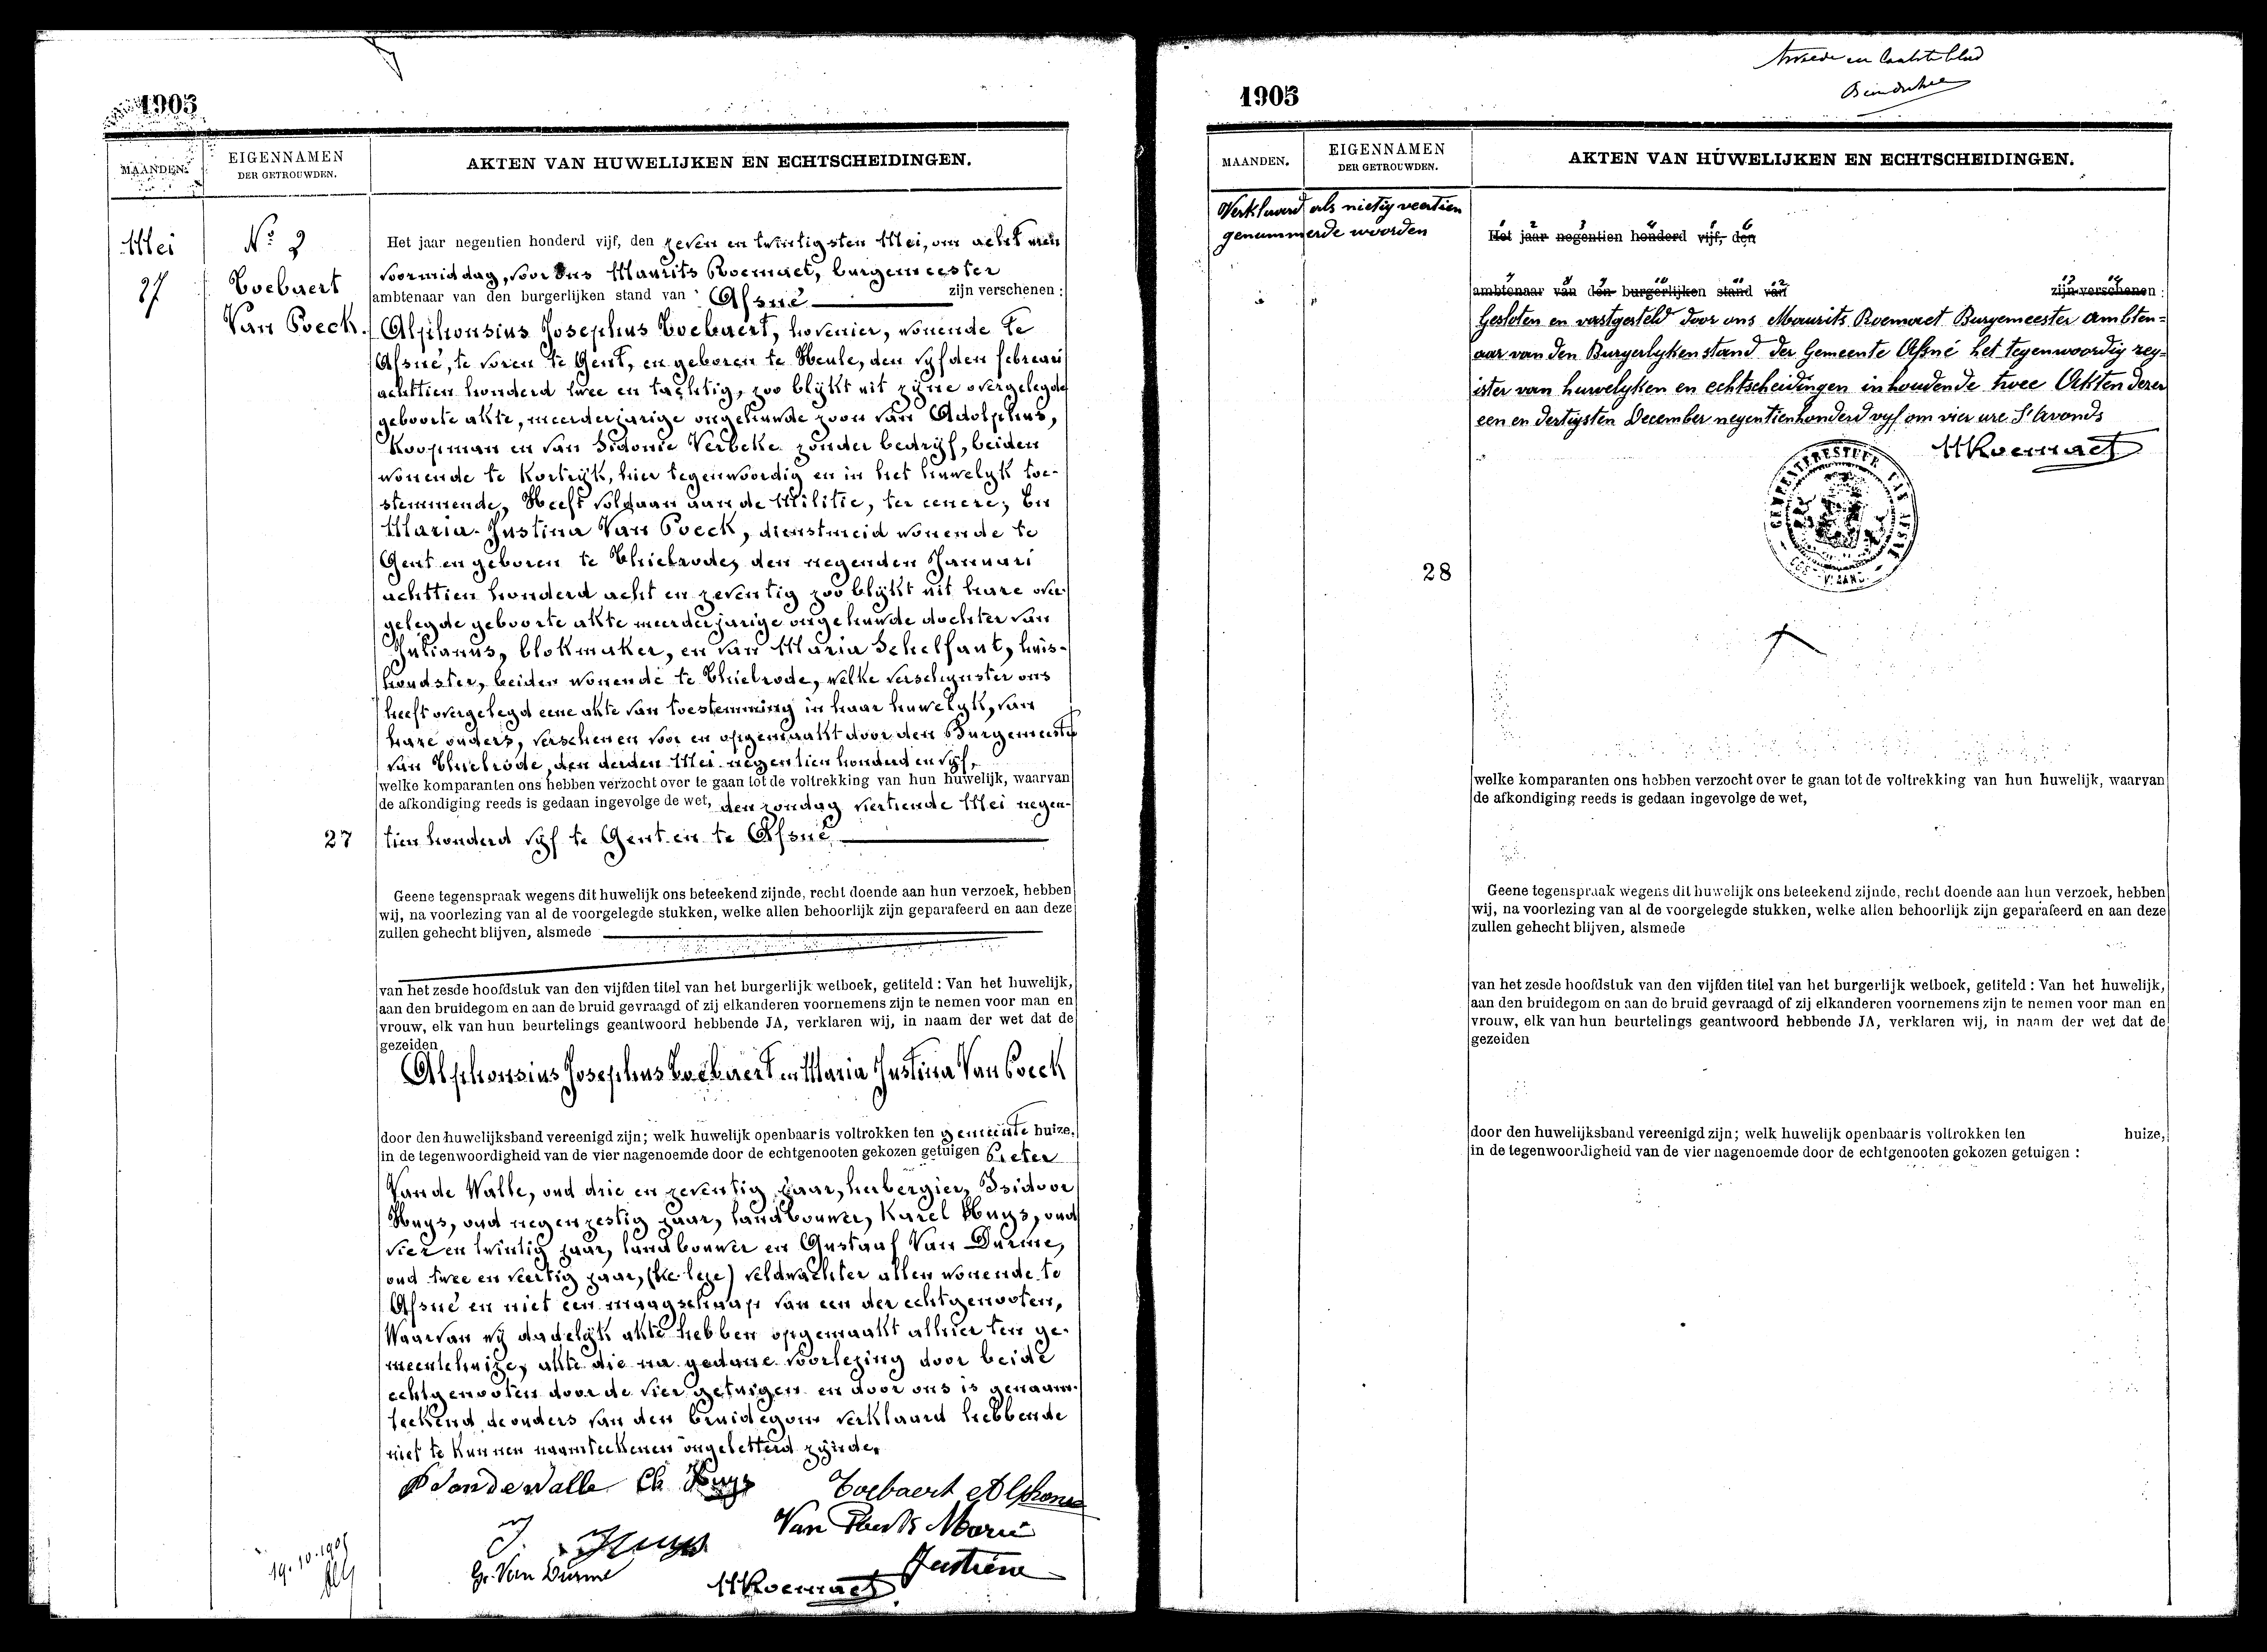 1905
MAANDEN.
EIGENNAMEN
DER GETROUWDEN.
AKTEN VAN HUWELIJKEN EN ECHTSCHEIDINGEN.
Mei
27
No 2
Toebaert
Van Poeck.
Het jaar negentien honderd vijf, den zeven en twintigsten Mei, om acht uren
voormiddag, voor Ons Maurits Roemaet, burgemeester
ambtenaar van den burgerlijken stand van Afsné zijn verschenen :
Alphonsius Josephus Toebaert, hovenier, wonende te
Afsné, te voren te Gent, en geboren te Heule, den vyfden februari
achttien honderd twee en tachtig, zoo blykt uit zyne overgelegde
geboorte akte, meerderjarige ongehuwde zoon van Adolphus,
Koopman en van Sidonie Verbeke zonder bedryf, beiden
wonende te Kortryk, hier tegenwoordig en in het huwelyk toe-
stemmende, Heeft voldaan aan de Militie, ter eenere; En
Maria-Justina Van Poeck, dienstmeid wonende te
Gent en geboren te Thielrode, den negenden Januari
achttien honderd acht en zeventig zoo blykt uit hare over-
gelegde geboorte akte meerderjarige ongehuwde dochter van
Julianus, blokmaker, en van Maria Schelfaut, huis-
houdster, beiden wonende te Thielrode, welke verschynster ons
heeft overgelegd eene akte van toestemming in haar huwelyk, van
hare ouders, verschenen voor en opgemaakt door den Burgemeester
van Thielrode, den derden Mei negentien honderd en vyf,
welke komparanten ons hebben verzocht over te gaan tot de voltrekking van hun huwelijk, waarvan
de afkondiging reeds is gedaan ingevolge de wet, den zondag veertiende Mei negen-
tien honderd vyf te Gent en te Afsné
27
Geene tegenspraak wegens dit huwelijk ons beteekend zijnde, recht doende aan hun verzoek, hebben
wij, na voorlezing van al de voorgelegde stukken, welke allen behoorlijk zijn geparafeerd en aan deze
zullen gehecht blijven, alsmede
van het zesde hoofdstuk van den vijfden titel van het burgerlijk wetboek, getiteld : Van het huwelijk,
aan den bruidegom en aan de bruid gevraagd of zij elkanderen voornemens zijn te nemen voor man en
vrouw, elk van hun beurtelings geantwoord hebbende JA, verklaren wij, in naam der wet dat de
gezeiden
Alphonsius Josephus Toebaert en Maria Justina Van Poeck
door den huwelijksband vereenigd zijn; welk huwelijk openbaar is voltrokken ten gemeente huize,
in de tegenwoordigheid van de vier nagenoemde door de echtgenooten gekozen getuigen Pieter
Van de Walle, oud drie en zeventig jaar, herbergier, Isidoor
Huys, oud negenzestig jaar, landbouwer, Karel Huys, oud
vier en twintig jaar, landbouwer en Gustaaf Van Durme,
oud twee en veertig jaar, veldwachter allen wonende te
Afsné en niet een maagschap van een der echtgenooten,
Waarvan wy dadelyk akte hebben opgemaakt alhier ten ge-
meentehuize, akte die na gedane voorlezing door beide
echtgenooten door de vier getuigen en door ons is genaam-
teekend de ouders van den bruidegom verklaard hebbende
niet te kunnen naamteekenen ongeletterd zynde.
P Vandewalle Ch Huys Toebaert Alphonse
Van Marie
J. Huys Justiene
G. Van Durme
M Roemaet
19.10.1905
1905
tweede en laatste blad
MAANDEN.
EIGENNAMEN
DER GETROUWDEN.
AKTEN VAN HUWELIJKEN EN ECHTSCHEIDINGEN.
Verklaard als nietig veertien
genummerde woorden
1 2 3 4 5 6
Het jaar negentien honderd vijf, den
7 8 9 10 11 12 13 14
ambtenaar van den burgerlijken stand van zijn verschenen :
Gesloten en vastgesteld door ons Maurits Roemaet Burgemeester ambten=
aar van den Burgerlyken stand der Gemeente Afsné het tegenwoordig reg=
ister van huwelyken en echtscheidingen inhoudende twee Akten dezen
een en dertigsten December negentienhonderd vyf om vier ure S'Avonds
M Roemaet
GEMEENTEBESTUUR VAN AFSNÉ
OOST-VLAAND.
28
welke komparanten ons hebben verzocht over te gaan tot de voltrekking van hun huwelijk, waarvan
de afkondiging reeds is gedaan ingevolge de wet,
Geene tegenspraak wegens dit huwelijk ons beteekend zijnde, recht doende aan hun verzoek, hebben
wij, na voorlezing van al de voorgelegde stukken, welke allen behoorlijk zijn geparafeerd en aan deze
zullen gehecht blijven, alsmede
van het zesde hoofdstuk van den vijfden titel van het burgerlijk wetboek, getiteld : Van het huwelijk,
aan den bruidegom en aan de bruid gevraagd of zij elkanderen voornemens zijn te nemen voor man en
vrouw, elk van hun beurtelings geantwoord hebbende JA, verklaren wij, in naam der wet dat de
gezeiden
door den huwelijksband vereenigd zijn; welk huwelijk openbaar is voltrokken ten huize,
in de tegenwoordigheid van de vier nagenoemde door de echtgenooten gekozen getuigen :